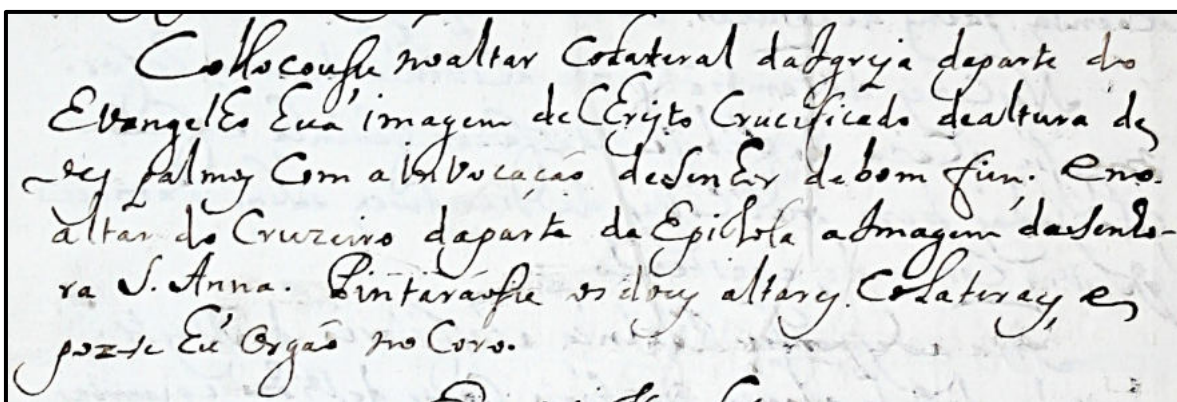 Collocousse no altar Colateral da Igreja da parte do
Evangelho hũa imagem de Christo Crucificado de altura de
des palmos Com a invocação de Senhor de bom fim. e no
altar do Cruzeiro da parte da Epistola a Imagem da Senho-
ra S. Anna. Pintarãosse os dous altares Colateraes, e
poz-se hũ Orgão no Coro.